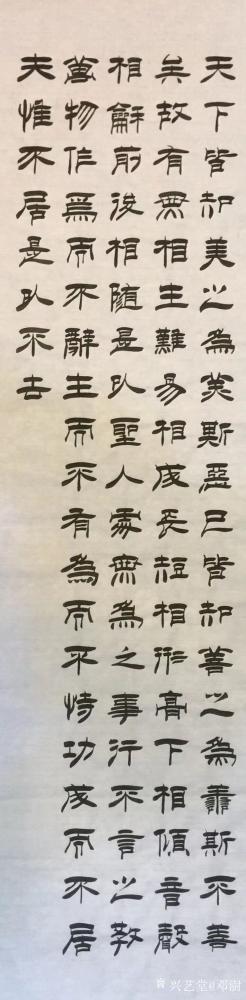 天下皆知美之為美斯惡已皆知善之為善斯不善
矣故有無相生難易相成長短相形高下相傾音聲
相龢前後相隨是以聖人處無為之事行不言之教
萬物作焉而不辭生而不有為而不恃功成而不居
夫惟不居是以不去
兴艺堂@邓澍